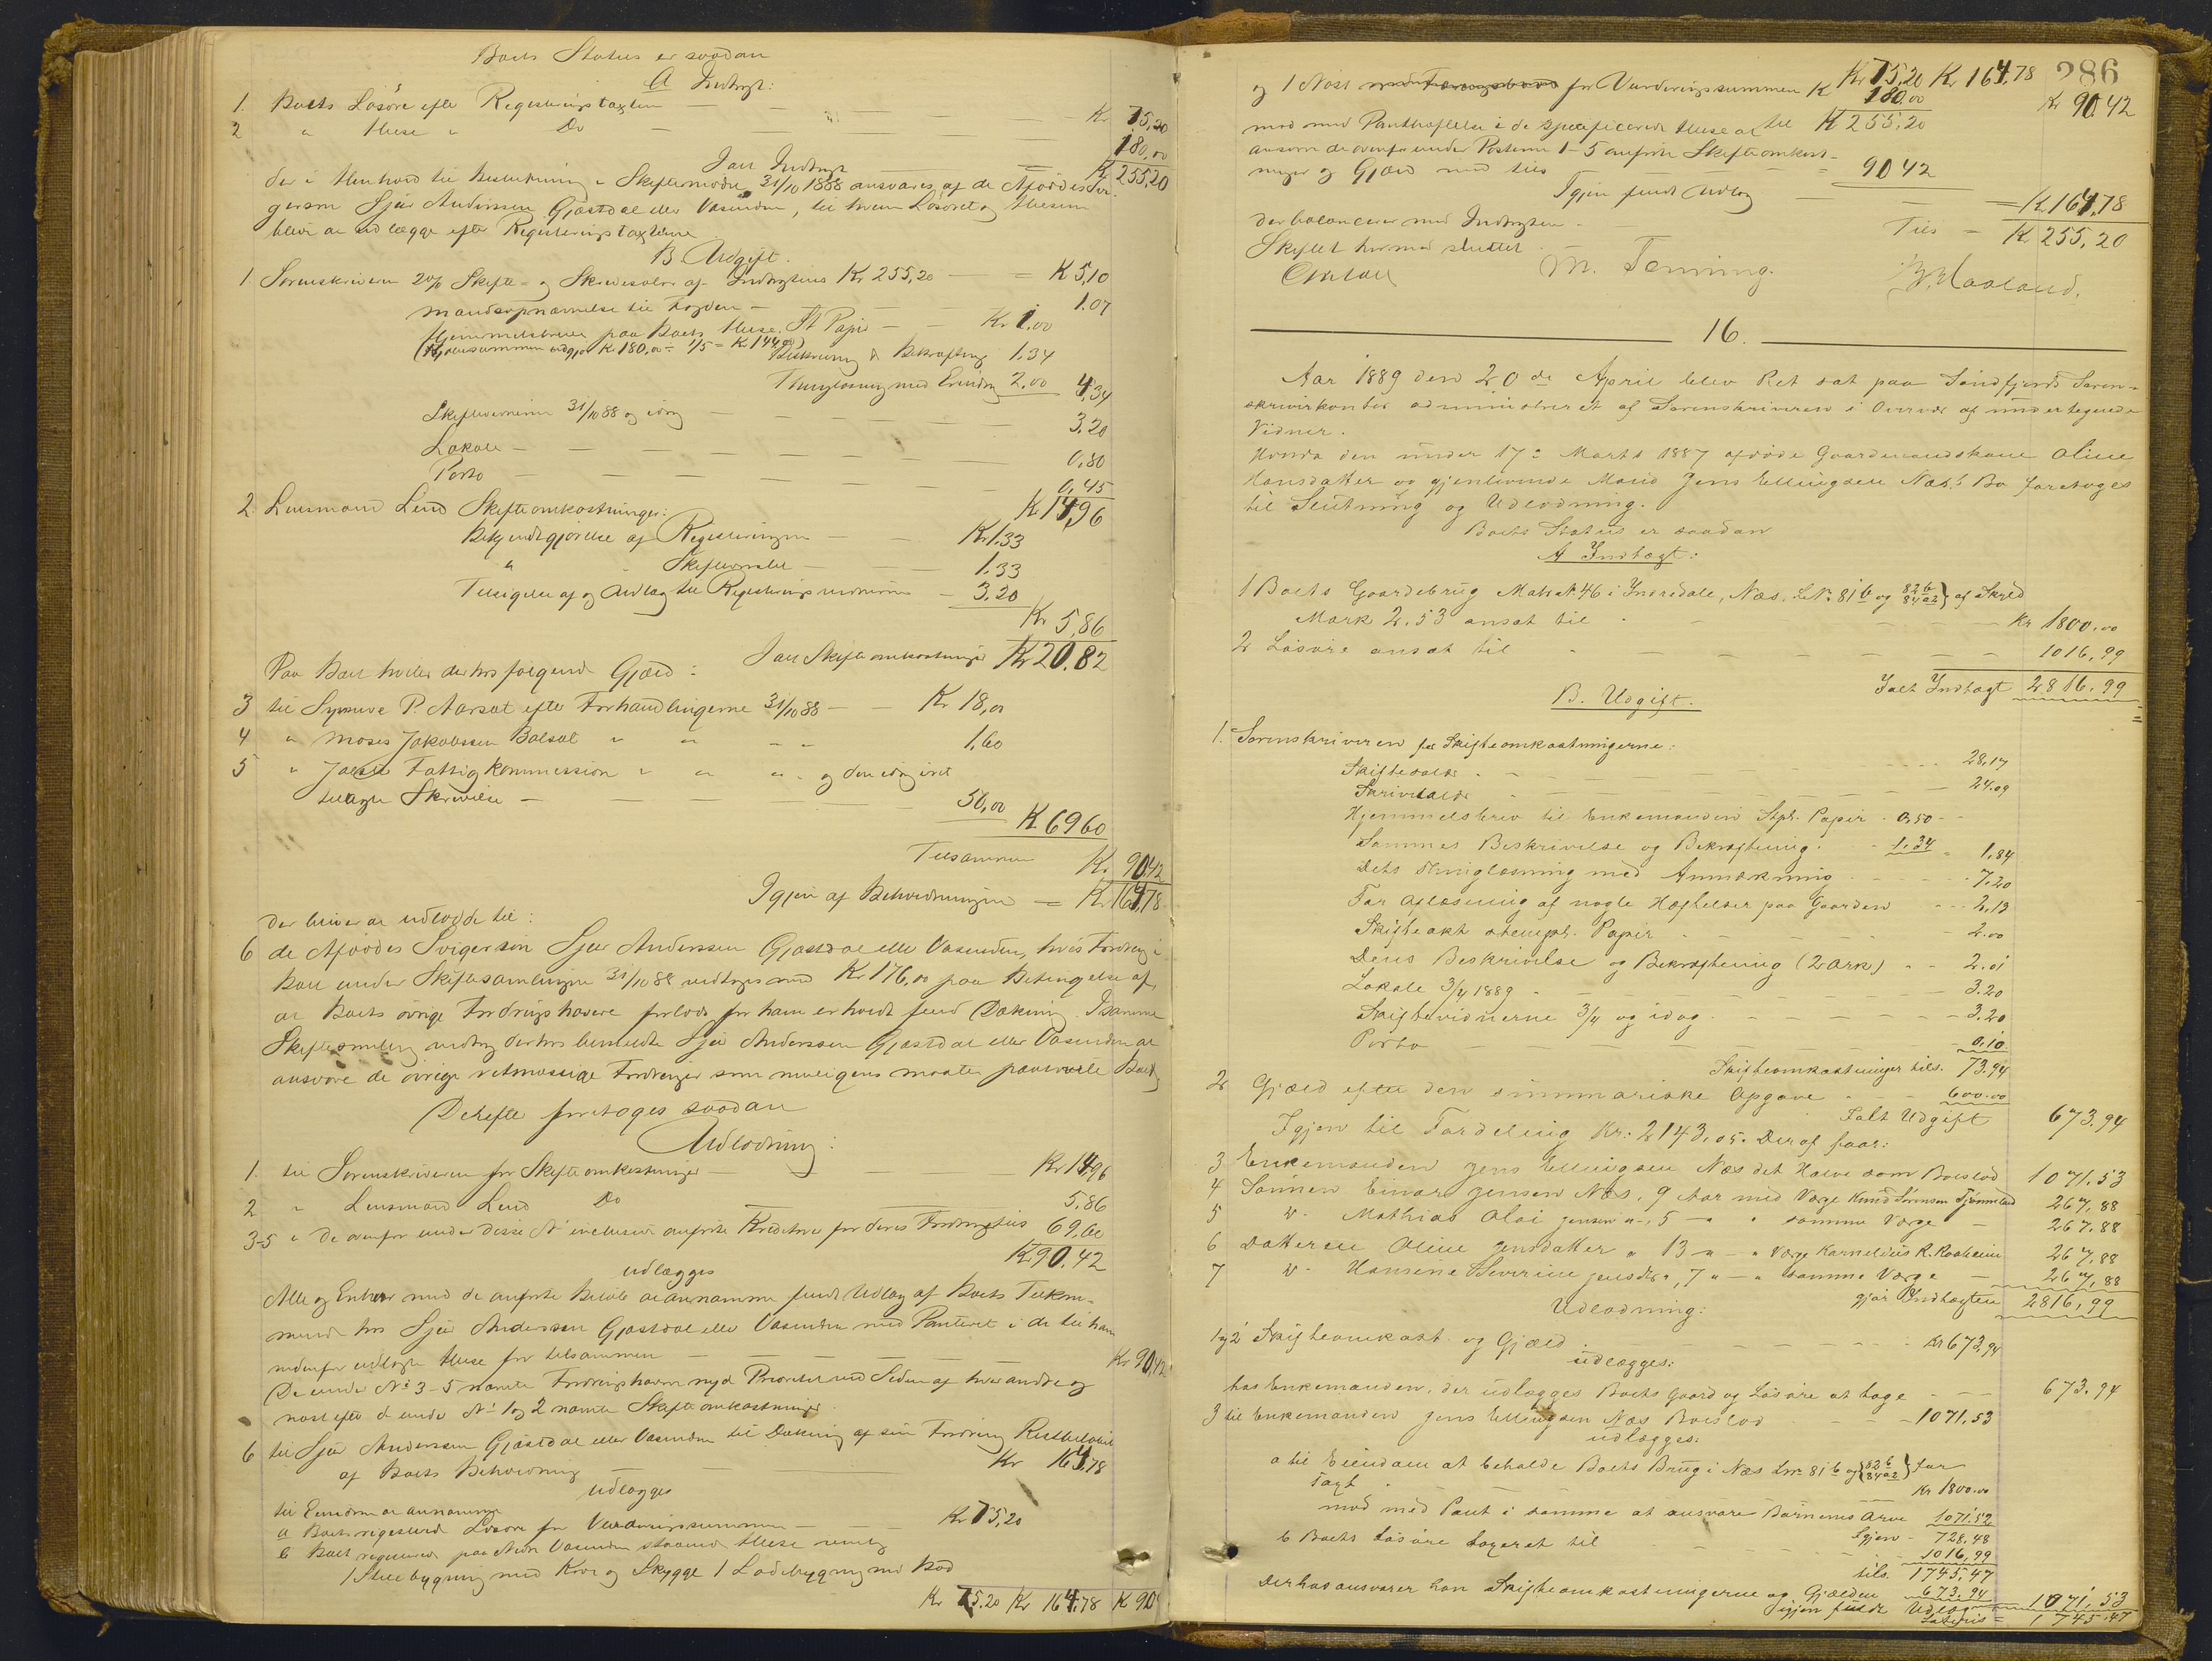 Boets Status er saadan
A Indtægt:
1. Boets Løsøre efter Registreringstaxten — — — Kr. 75,20
2 " Huse " Do — — — 180,00
Ialt Indtægt = Kr 255,20
der i Henhold til Beslutning i Skiftemøde 31/10 1888 ansvares af de Afdødes Svi-
gersøn Sjur Andersen Gjæstdal eller Vasenden, til hvem Løsøret og Husene
blive at udlægge efter Registreringstaxterne.
B. Udgift.
1 Sorenskriveren 2% Skifte- og Skrivesalær af Indtægtens Kr 255,20 — = K 5,10
Mandsopnævnelse til Fogden — 1.07
Hjemmelsbrev paa Boets Huse. St Papir — Kr 1.00
(Kjøbesummen udgjør K 180,00 ÷ 1/5 = K 144,00) Beskrivning & Bekræftning 1,34
Thinglæsning med Erindr. 2,00 4,34
Skiftevidnerne 31/10 88 og idag — — 3,20
Lokale — — — 0,80
Porto — — — 0,45
K 14,96
2. Lensmand Lend Skifteomkostninger:
Bekjendtgjørelse af Registreringen — Kr 1.33
" Skiftemødet — 1.33
Tilsigelse af og Udlæg til Registreringsvidnerne — 3.20
Kr 5,86
Ialt Skifteomkostninger Kr 20.82
Paa Boet hviler derhos følgende Gjæld:
3 til Synneve P. Aarsæt efter Forhandlingerne 31/10 88 — — Kr 18,00
4 " Moses Jakobssen Bolsæt " " " " 1,60
5 " Jølster Fattigkommission " " " " og den idag ivret
tilagte Skrivelse — — — 50,00
K 69 60
Tilsammen Kr. 90,42
Igjen af Beholdningen = Kr. 164,78
der bliver at udlodde til:
6 de Afdødes Svigersøn Sjur Anderssen Gjæstdal eller Vasenden, hvis Fordring i
Boet under Skiftesamlingen 31/10 88 vedtoges med Kr 176,00 paa Betingelse af,
at Boets øvrige Fordringshavere forlods for ham erholdt fuld Dækning. I samme
Skiftesamling vedtog derhos bemeldte Sjur Anderssen Gjæstdal eller Vasenden at
ansvare de øvrige retmæssige Fordringer som muligens maatte paahvile Boet
Derefter foretoges saadan
Udlodning:
1. til Sorenskriveren for Skifteomkostninger — — — Kr 14,96
2 " Lensmand Lend Do — — 5.86
3-5 " De ovenfor under disse No inclusive anførte Kreditorer for deres Fordringer tils 69,60
K 90.42
udlægges
Alle og Enhver med de anførte Beløb at annamme fuldt Udlæg af Boets Tilkom-
mende hos Sjur Anderssen Gjæstdal eller Vasenden med Panteret i de til ham
nedenfor udlagte Huse for tilsammen — — — Kr 90,42
De under No 3-5 nævnte Fordringshavere nyde Prioritet ved Siden af hverandre og
næst efter de under No 1 og 2 nævnte Skifteomkostninger.
6 til Sjur Anderssen Gjæstdal eller Vasenden til Dækning af sin Fordring Restbeløbet
af Boets Beholdning — — — Kr 164,78
udlægges
til Eiendom at annamme
a Boets registrerede Løsøre for Vurderingssummen — — Kr 75,20
b Boets registrerede paa Nedre Vasenden staaende Huse nemlig
1 Stuebygning med Kove og Skygge 1 Ladebygning med Bod
Kr 75.20 Kr 164.78 K 90
286
Kr 75,20 Kr 164,78
og 1 Nøst med Færingsbaad for Vurderingssummen K 180,00 Kr 90.42
mod med Pantheftelse i de specificerede Huse at til K 255,20
ansvare de ovenfor under Posterne 1-5 anførte Skifteomkost-
ninger og Gjæld med tils — — = 90 42
Igjen fuldt Udlæg — — = K. 164,78
der balancerer med Indtægten. — Tils = K. 255,20
Skiftet hermed sluttet. —
M. Tenning. B. Haaland.
16.
Aar 1889 den 20de April blev Ret sat paa Søndfjords Soren-
skriverkontor administreret af Sorenskriveren i Overvær af undertegnede
Vidner.
Hvorda den under 17: Marts 1887 afdøde Gaardmandskone Oline
Hansdatter og gjenlevende Mand Jens Ellingsen Næs's Bo foretoges
til Slutning og Udlodning.
Boets Status er saadan
A Indtægt:
1 Boets Gaardebrug Matr No 46 i Indredale, Næs, L.No 81 b og 82 b 84 a2 } af Skyld
Mark 2.53 ansat til — — — Kr 1800.00
2 Løsøre ansat til — — — 1016,99
Ialt Indtægt 2816,99
B. Udgift.
1. Sorenskriveren for Skifteomkostningerne:
Skiftesalær — — — 28,17
Skrivesalær — — — 24.09
Hjemmelsbrev til Enkemanden Stpl. Papir . 0,50 —
Sammes Beskrivelse og Bekræftning . - 1.34 - 1,84
Dets Thinglæsning med Anmærkning — — 7.20
For Aflæsning af nogle Hæftelser paa Gaarden — 2,13
Skifteakt stempl. Papir — — 2.00
Dens Beskrivelse og Bekræftning (2 Ark) — 2.01
Lokale 3/4 1889 — — — 3.20
Skiftevidnerne 3/4 og idag — — — 3.20
Porto — — — 0.10
Skifteomkostninger tils. 73.94
2 Gjæld efter den summariske Opgave — — 600.00
Ialt Udgift 673.94
Igjen til Fordeling Kr: 2143.05. Deraf faar:
3 Enkemanden Jens Ellingsen Næs det Halve som Boeslod 1071.53
4 Sønnen Einar Jensen Næs, 9 Aar med Værge Knud Sørensen Tjønneland 267,88
5 " Mathias Olai Jensen " 5 " " samme Værge — 267.88
6 Datteren Oline Jensdatter " 13 " " Værge Karnelius R. Raaheim 267,88
7 " Hansine Severine Jensdtr " 7 " — " samme Værge — 267,88
gjør Indtægten 2816,99
Udlodning:
1 og 2 Skifteomkost. og Gjæld . — — — Kr 673,94
udlægges:
hos Enkemanden, der udlægges Boets Gaard og Løsøre at tage — — 673.94
3 til Enkemanden Jens Ellingsen Næs Boeslod — — 1071.53
udlægges:
a til Eiendom at beholde Boets Brug i Næs Lnr. 81 b og {82 b 84 a2} for
Taxt — Kr 1800.00
mod med Pant i samme at ansvare Børnenes Arve 1071.52
Igjen — 728,48
b Boets Løsøre taxeret til — — — 1016,99
tils. 1745,47
Derhos ansvarer han Skifteomkostningerne og Gjælden 673.94
igjen fuldt Udlæg = 1071,53
Lateris = 1745.47